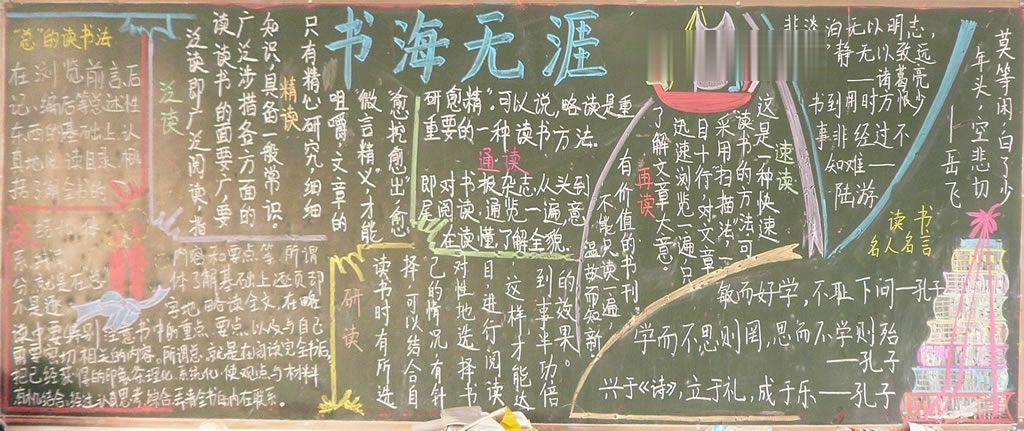 书海无涯
“总”的读书法
在浏览前言、后
记、编后等总述性
东西的基础上,认
真地阅读目录,概
内容和要点等,所谓
体了解基础上,还须部
字地略读全文,在略
读中要特别注意书中的重点、要点以及与自己
密切相关的内容。所谓总,就是在阅读完全书后,
把已经获得的印象条理化、系统化,使观点与材料
有机结合,经过认真思考、综合弄清全书的内在联系。
泛读
泛读即广泛阅读,指
读读书的面要广,要
广泛涉措各方面的
知识,具备一般常识。
精读
只有精心研究,细细
咀嚼,文章的
“微言精义”才能
愈挖愈出,愈
研愈精”可以说,略读是重
重要的一种读书方法.
通读
即对书报杂志,从头到
尾阅读通览一遍意
在读懂,了解全貌.
研读
读书时有所选
择,可以结合自
己的情况,有针
对性地选择书
目,进行阅读
这样才能达
到事半功倍
的效果。
再读
有价值的书刊,
不能只读一遍,
温故而知新
速读
这是一种快速
读书的方法,可
采用扫描法,一
目十行,对文章
迅速浏览一遍,只
了解文章大意。
非淡泊无以明志,
静无以致远
——诸葛亮
书到用时方恨少
事非经过不
知难——陆游
莫等闲白了少
年头,空悲切
——岳飞
读书
名人名言
敏而好学,不耻下问—孔子
学而不思则罔,思而不学则殆
——孔子
兴于《诗》,立于礼,成于乐——孔子